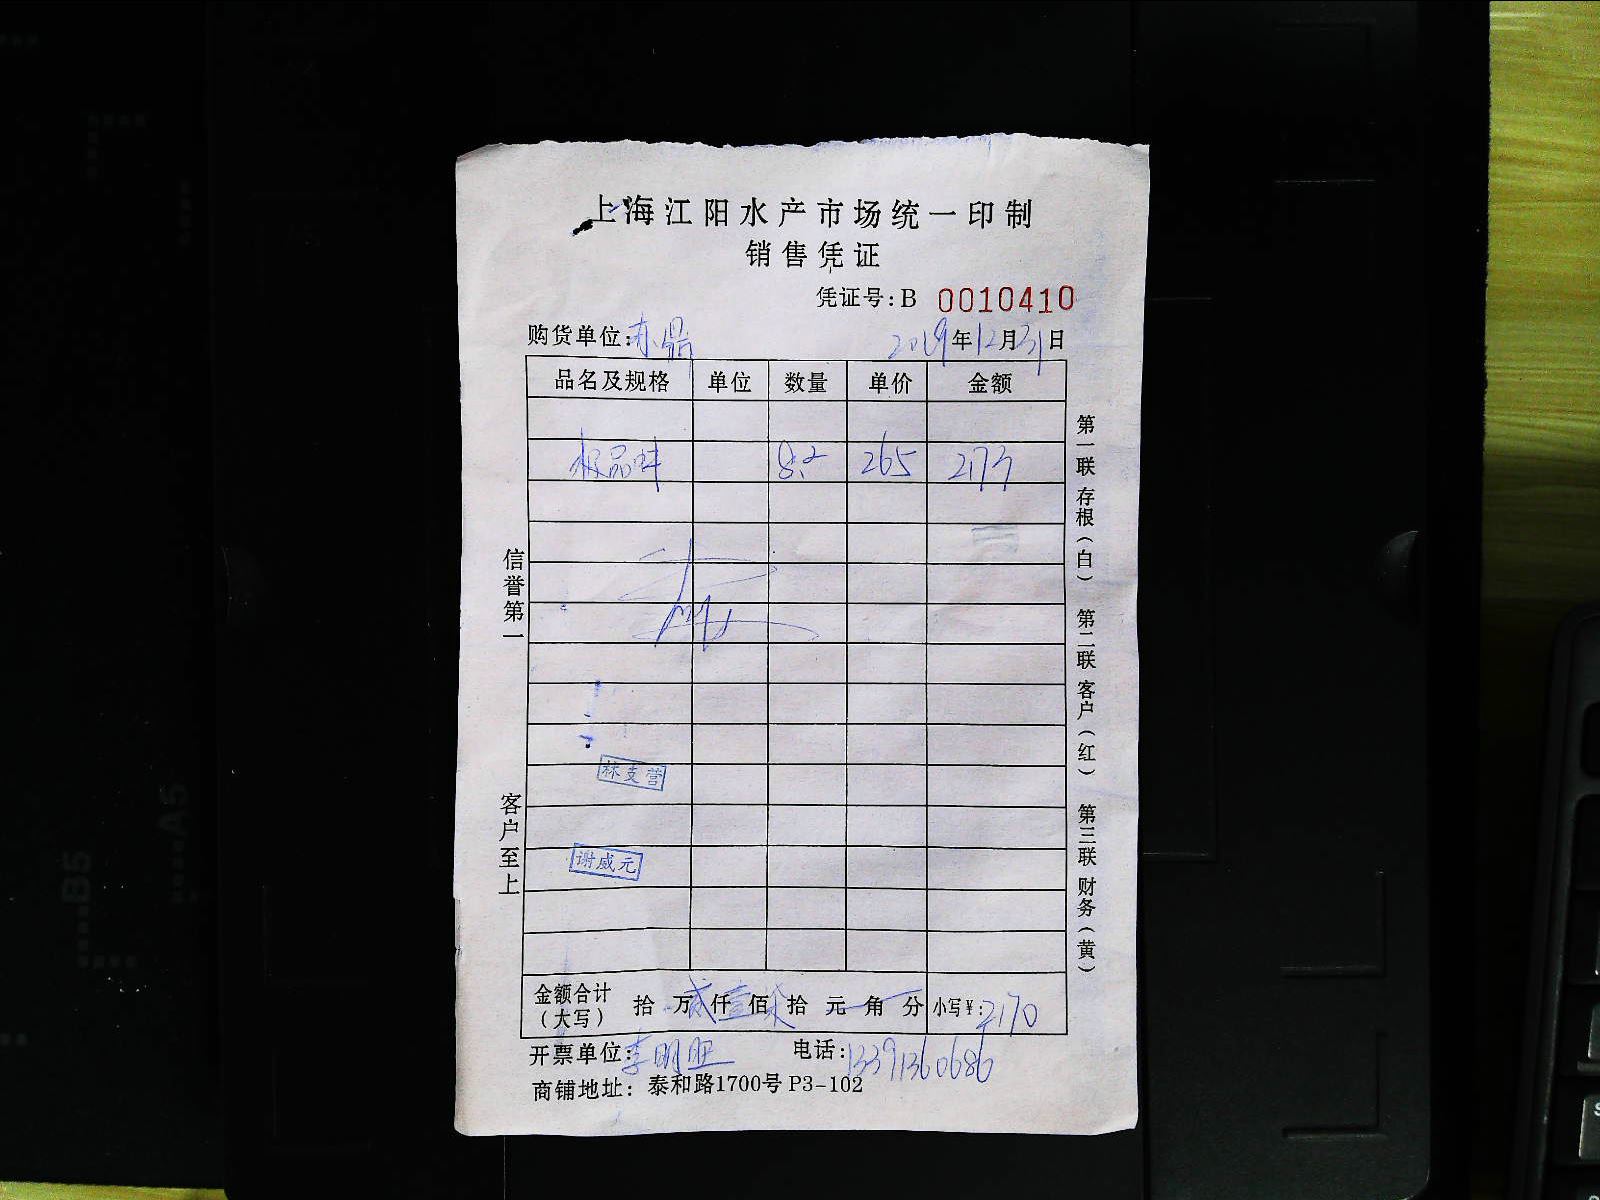 上海江阳水产市场统一印制
销售凭证
凭证号:B 0010410
购货单位:赤鼎 2019年12月31日
品名及规格 单位 数量 单价 金额
极品虾 8.2 265 2173
林支营
谢威元
金额合计(大写) 拾万贰仟壹佰柒拾元角分 小写¥:2170
开票单位:李明旺 电话:13391360686
商铺地址: 泰和路1700号 P3-102
信誉第一
客户至上
第一联 存根(白) 第二联 客户(红) 第三联 财务(黄)
B5
A5